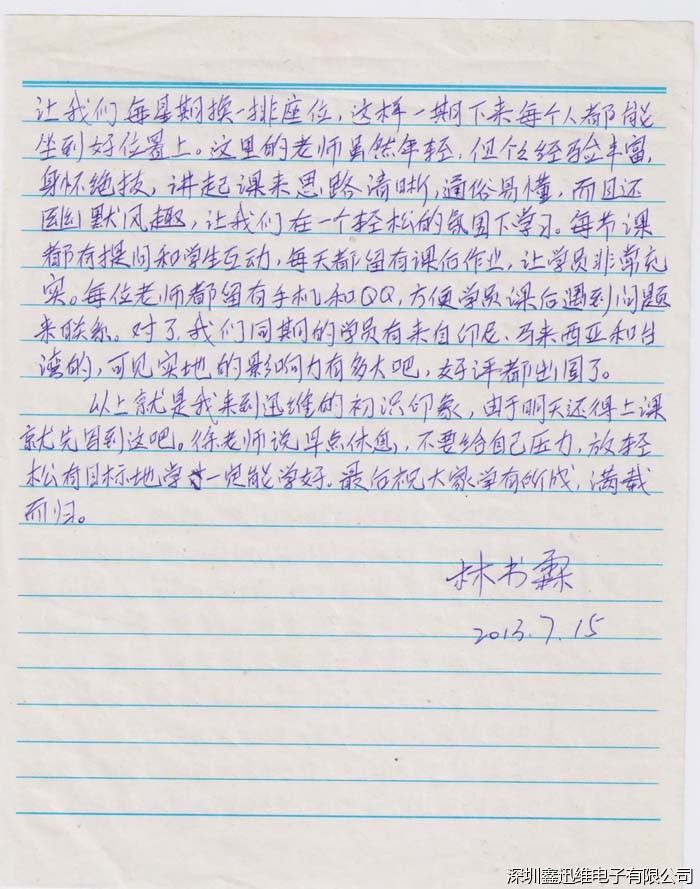 让我们每星期换一排座位，这样一期下来每个人都能
坐到好位置上。这里的老师虽然年轻，但个个经验丰富，
身怀绝技，讲起课来思路清晰，通俗易懂，而且还
幽默风趣，让我们在一个轻松的氛围下学习。每节课
都有提问和学生互动，每天都留有课后作业，让学员非常充
实。每位老师都留有手机和QQ，方便学员课后遇到问题
来联系。对了，我们同期的学员有来自印尼、马来西亚和台
湾的，可见实地的影响力有多大吧，好评都出国了。
以上就是我来到迅维的初识印象，由于明天还得上课
就先写到这吧。徐老师说早点休息，不要给自己压力，放轻
松有目标地学一定能学好。最后祝大家学有所成，满载
而归。
林书霖
2013.7.15
深圳鑫迅维电子有限公司